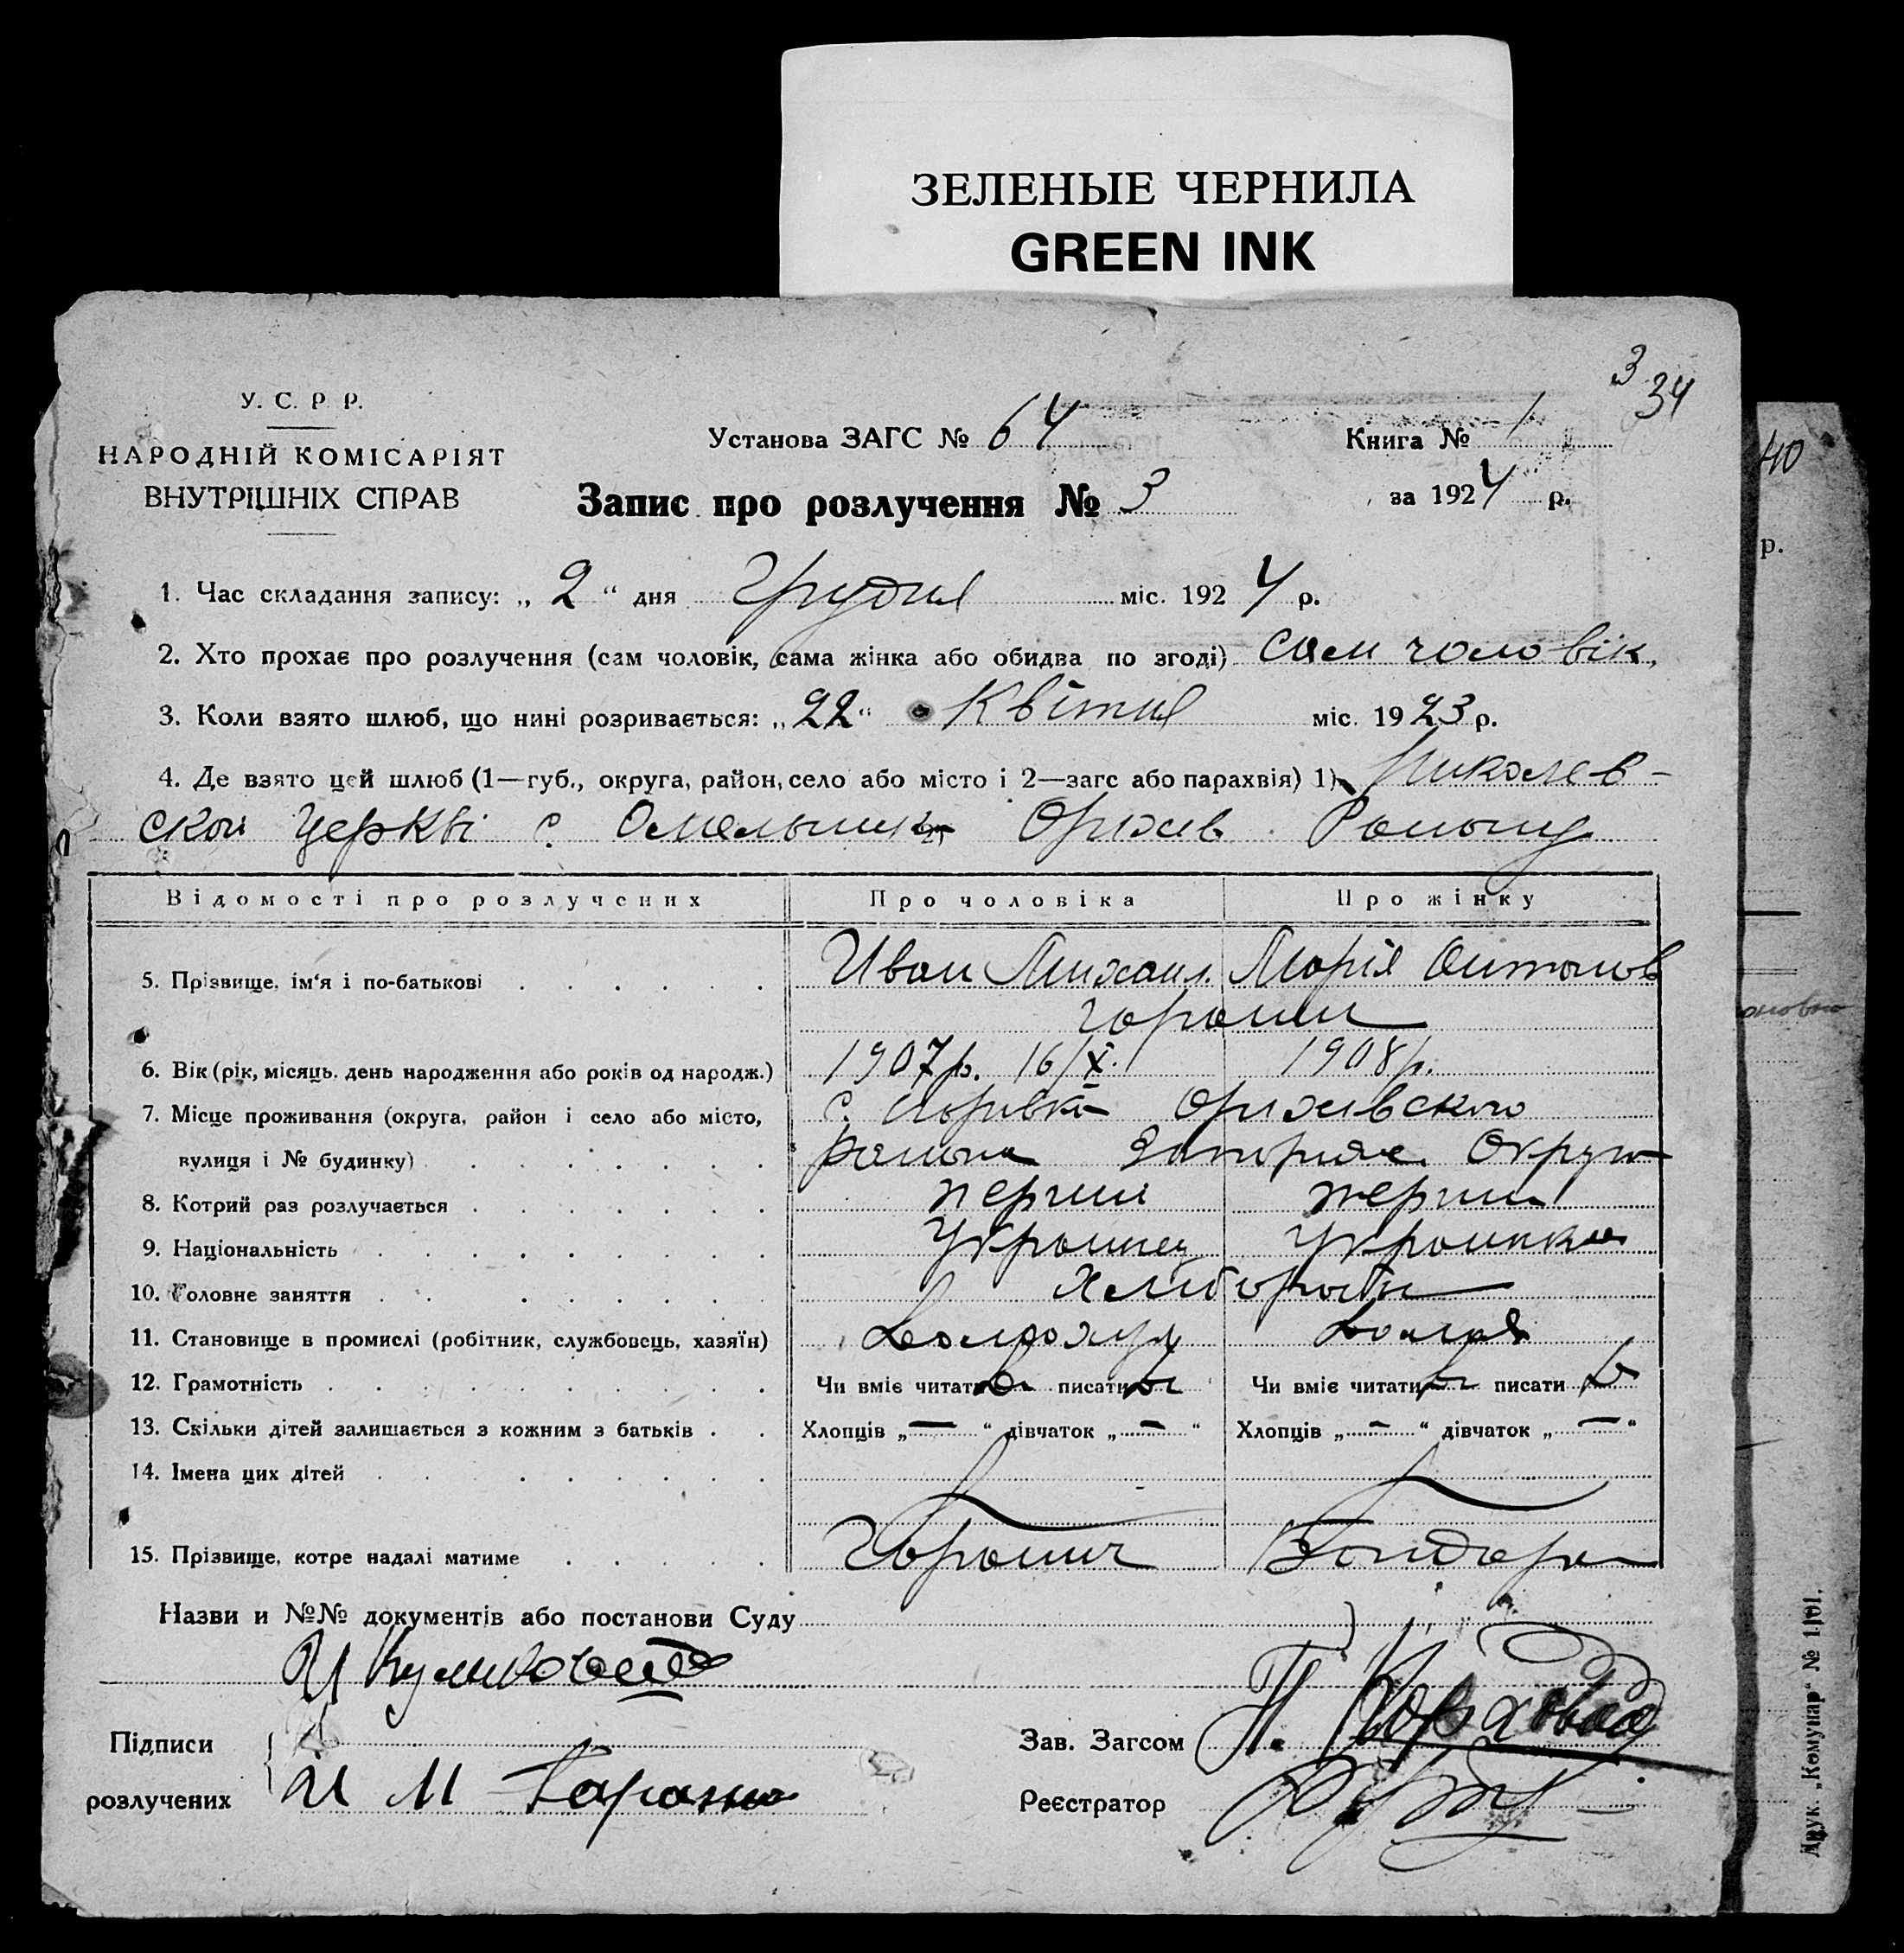 ЗЕЛЕНЫЕ ЧЕРНИЛА
GREEN INK
3
34
У. С. Р Р.
НАРОДНІЙ КОМІСАРІЯТ
ВНУТРІШНІХ СПРАВ
Установа ЗАГС № 64
Книга № 1
Запис про розлучення № 3
за 1924 р.
1. Час складання запису: „ 2 “ дня Грудня міс. 1924 р.
2. Хто прохає про розлучення (сам чоловік, сама жінка або обидва по згоді) сам чоловік.
3. Коли взято шлюб, що нині розривається: „22“ Квітня міс. 1923 р.
4. Де взято цей шлюб (1—губ., округа, район, село або місто і 2—загс або парахвія) 1) Николаев-
ской церкві с. Омельник 2) Оріхів. Району
Відомості про розлучених Про чоловіка Про жінку
5. Прізвище, ім‘я і по-батькові Иван Михаил. Марія Антонов
6. Вік (рік, місяць, день народження або років од народж.) 1907 р. 16/X. 1908 р.
7. Місце проживання (округа, район і село або місто, с. Оріхівского
вулиця і № будинку) района Запоріж. Округи
8. Котрий раз розлучається перший перший
9. Національність Украинец Украинка
10. Головне заняття Хлібороби
11. Становище в промислі (робітник, службовець, хазяїн)
12. Грамотність Чи вміє читати писати Чи вміє читати писати
13. Скільки дітей залишається з кожним з батьків Хлопців „ — “ дівчаток „ — “ Хлопців „ — “ дівчаток „ — “
14. Імена цих дітей
15. Прізвище, котре надалі матиме Бондар
Назви и №№ документів або постанови Суду
Підписи
розлучених
И М
Зав. Загсом П.
Реєстратор
40
р.
Друк. „Комунар“ № 1101.